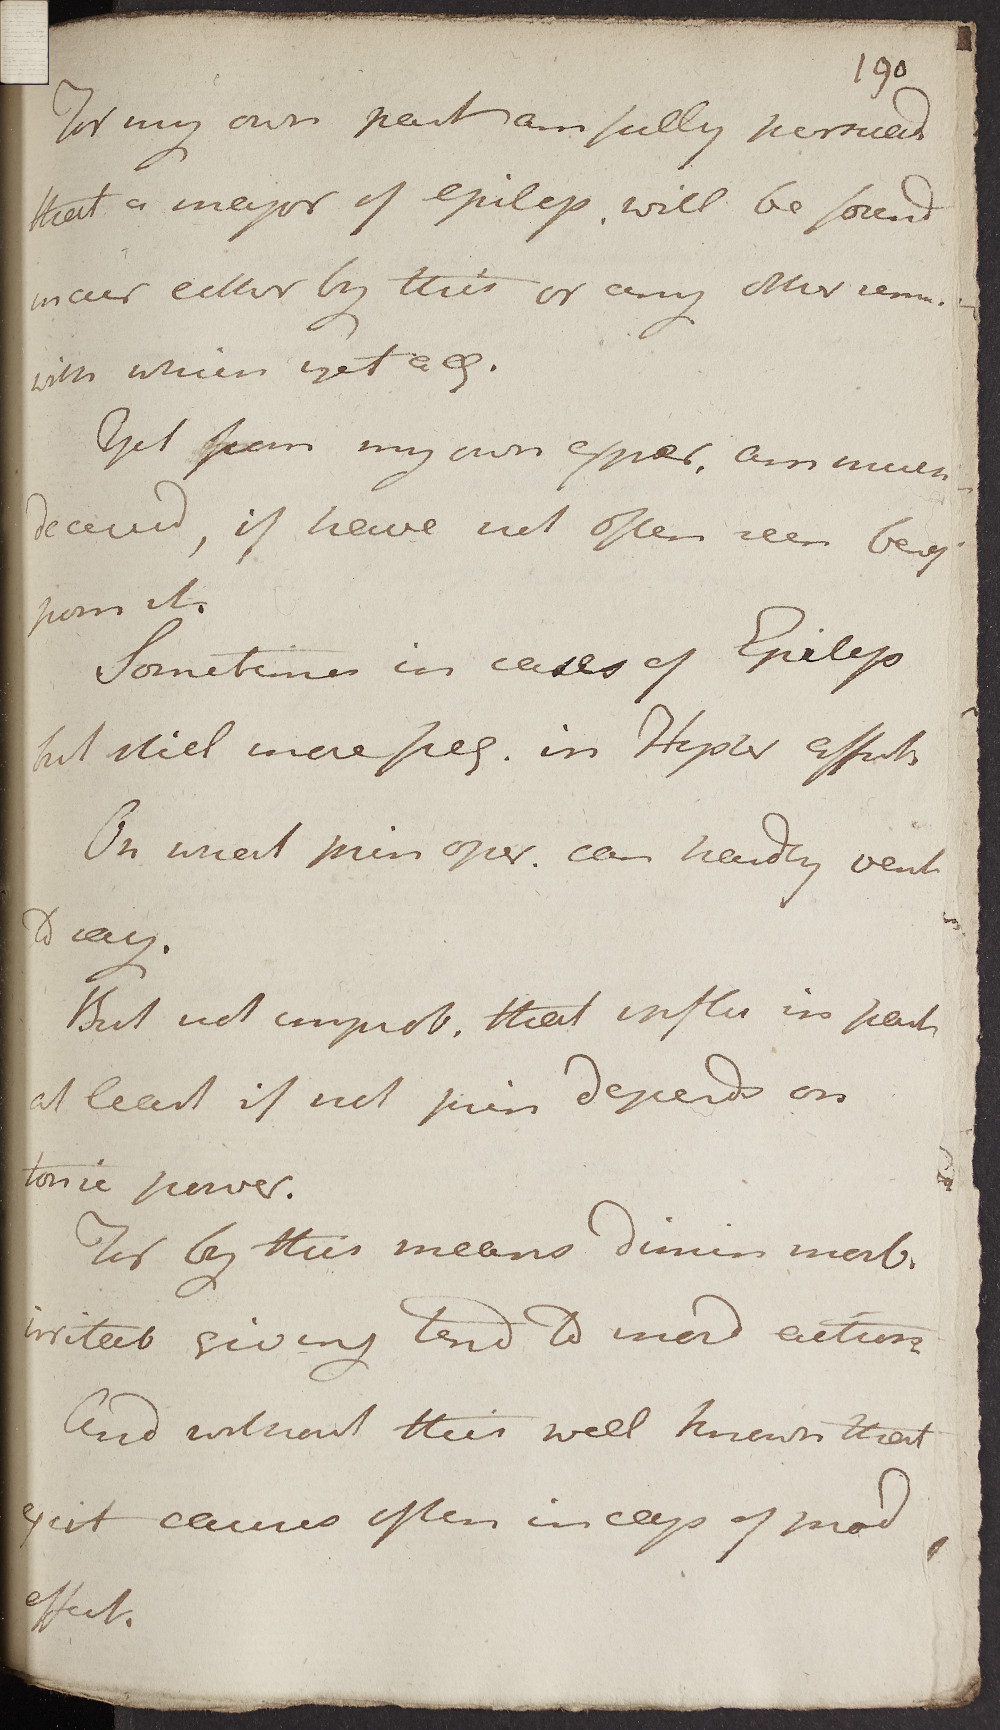 190
For my own part am fully persuad
that a major of epilep. will be found
incur either by this or any other rem.
with which yet acq.
Yet from my own exper. am much
deceived, if have not often seen benef
from it.
Sometimes in cases of Epilep
but still more freq. in Hyster affects
On what prin oper. can hardly vent
to say.
But not improb. that influ in part
at least if not prin depends on
tonic power.
For by this means dimin morb.
irritab giving tend to inord action
And without this well known that
exist causes often incap of prod
effect.